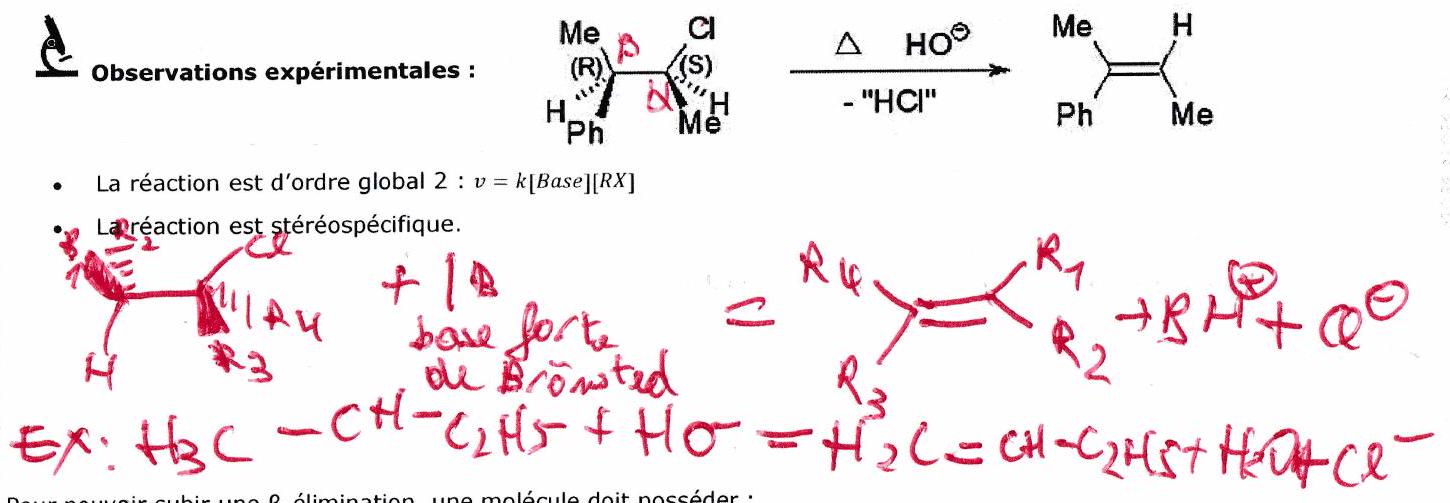 Me Cl Me H
β
(R) (S) Δ HO⊖
Observations expérimentales :
α
H H - "HCl"
Ph Me Ph Me
• La réaction est d'ordre global 2 : v = k[Base][RX]
• La réaction est stéréospécifique.
R1 R2 Cl R4 R1
+ |B = + BH⊕ + Cl⊖
R4
base forte
H R3 de Brönsted R3 R2
Ex: H3C - CH - C2H5 + HO- = H2C = CH - C2H5 + H2O + Cl-
Pour pouvoir subir une β-élimination, une molécule doit posséder :